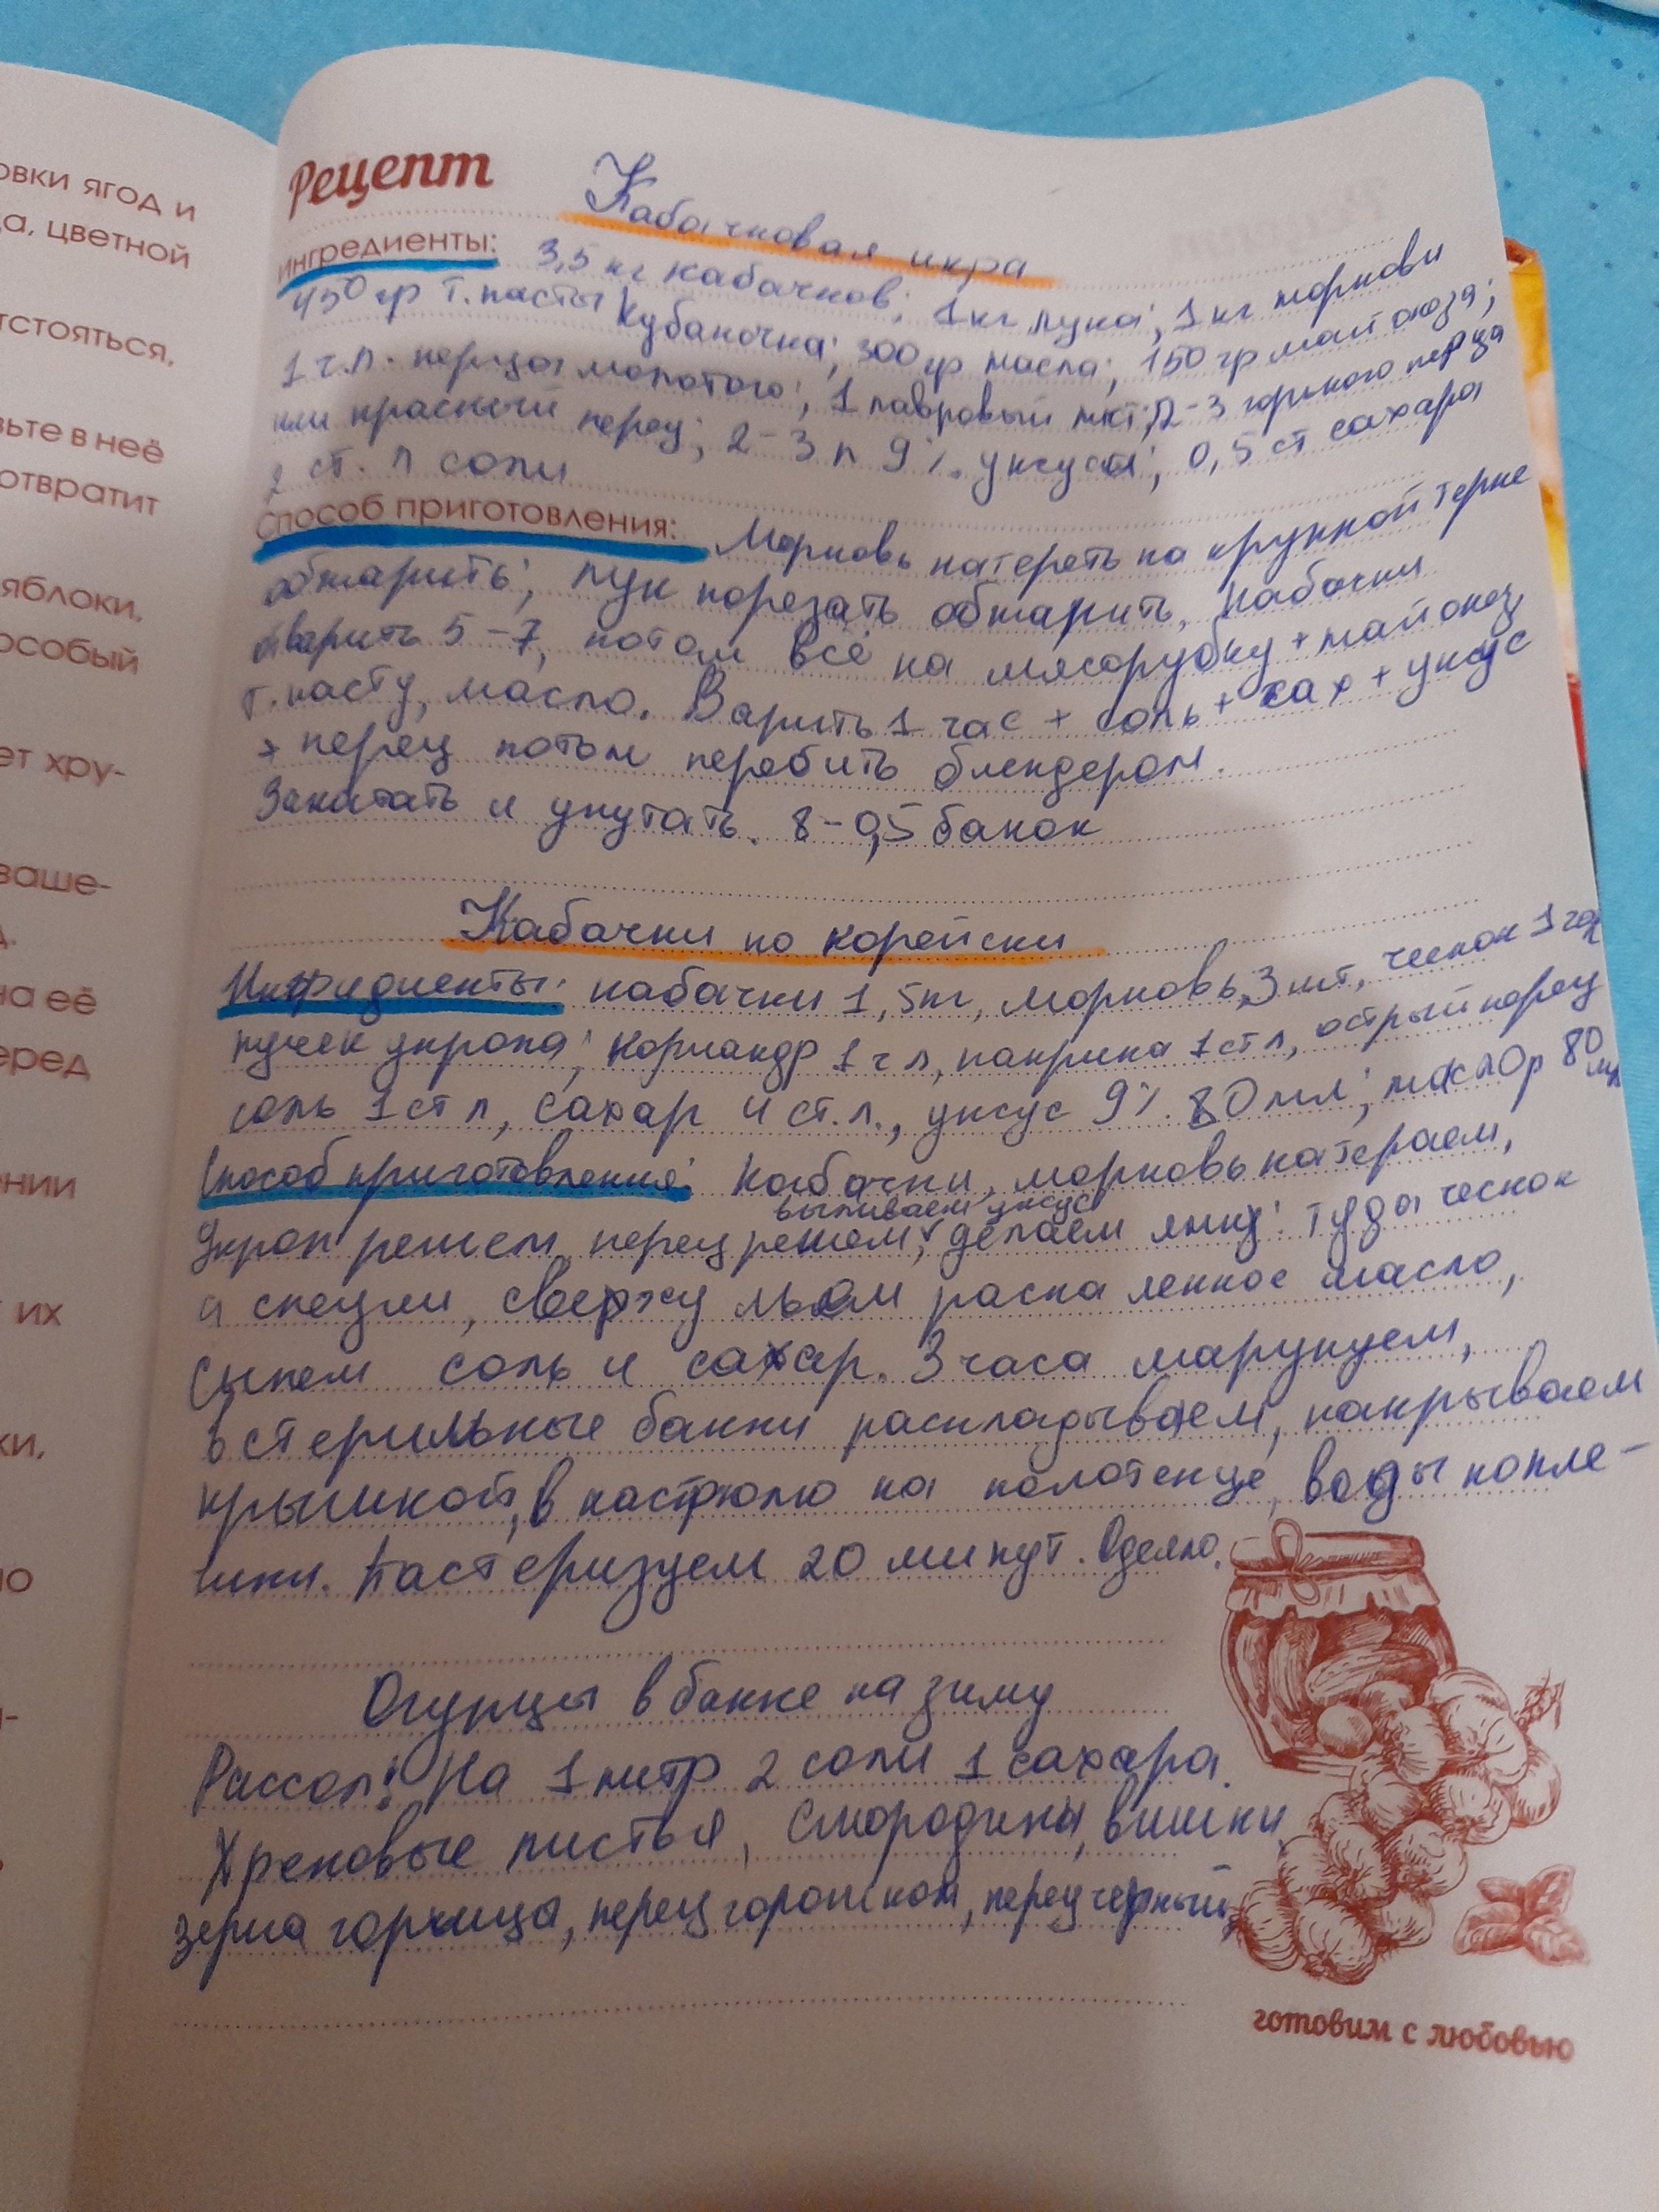 овки ягод и
ца, цветной
тстояться,
вьте в неё
отвратит
яблоки,
особый
ет хру-
ваше-
на её
еред
ении
их
ки,
но
Рецепт
Кабачковая икра
Ингредиенты: 3,5 кг кабачков; 1 кг лука; 1 кг моркови
450 гр т. пасты Кубаночка; 300 гр масла; 150 гр майонеза;
1 ч.л. перца молотого; 1 лавровый лист; 2-3 горького перца
или красный перец; 2-3 л 9% уксуса; 0,5 ст сахара
2 ст. л соли
Способ приготовления: Морковь натереть на крупной терке
обжарить; лук порезать обжарить, кабачки
отварить 5-7, потом всё на мясорубку + майонез,
т. пасту, масло. Варить 1 час + соль + сах + уксус
+ перец потом перебить блендером.
Закатать и укутать. 8-0,5 банок
Кабачки по корейски
Ингридиенты: кабачки 1,5кг, морковь 3 шт, чеснок 1 гол
пучек укропа; кориандр 1 ч л, паприка 1 ст л, острый перец
соль 1 ст л, сахар 4 ст. л., уксус 9% 80 мл; масло р 80 мл
Способ приготовления: Кабачки, морковь натераем,
выливаем уксус
Укроп режем, перец режем, делаем ямку: туда чеснок
и специи, сверху льем раскаленное масло,
Сыпем соль и сахар. 3 часа маринуем,
в стерильные банки раскладываем, накрываем
крышкой, в кастрюлю на полотенце, воды по пле-
чики. Пастеризуем 20 минут. Одеяло.
Огурцы в банке на зиму
Рассол: На 1 литр 2 соли 1 сахара.
Хреновые листья, Смородины, вишни,
зерна горчица, перец горошком, перец черный,
готовим с любовью